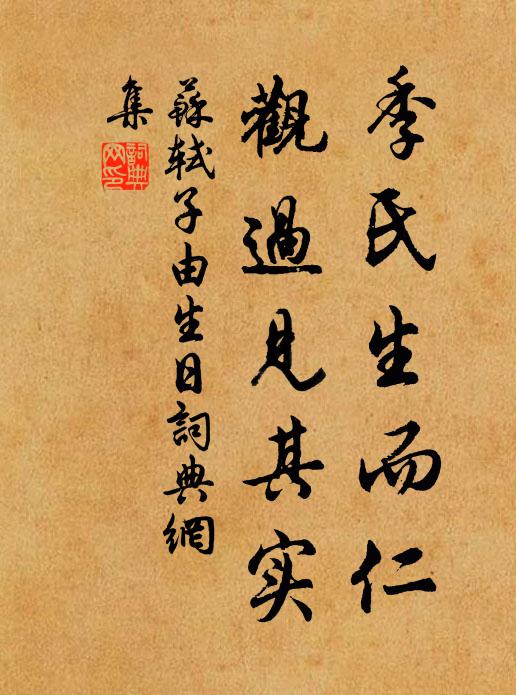 季氏生而仁
觀過見其实
蘇軾子由生日詞典網
集
詞典
网印